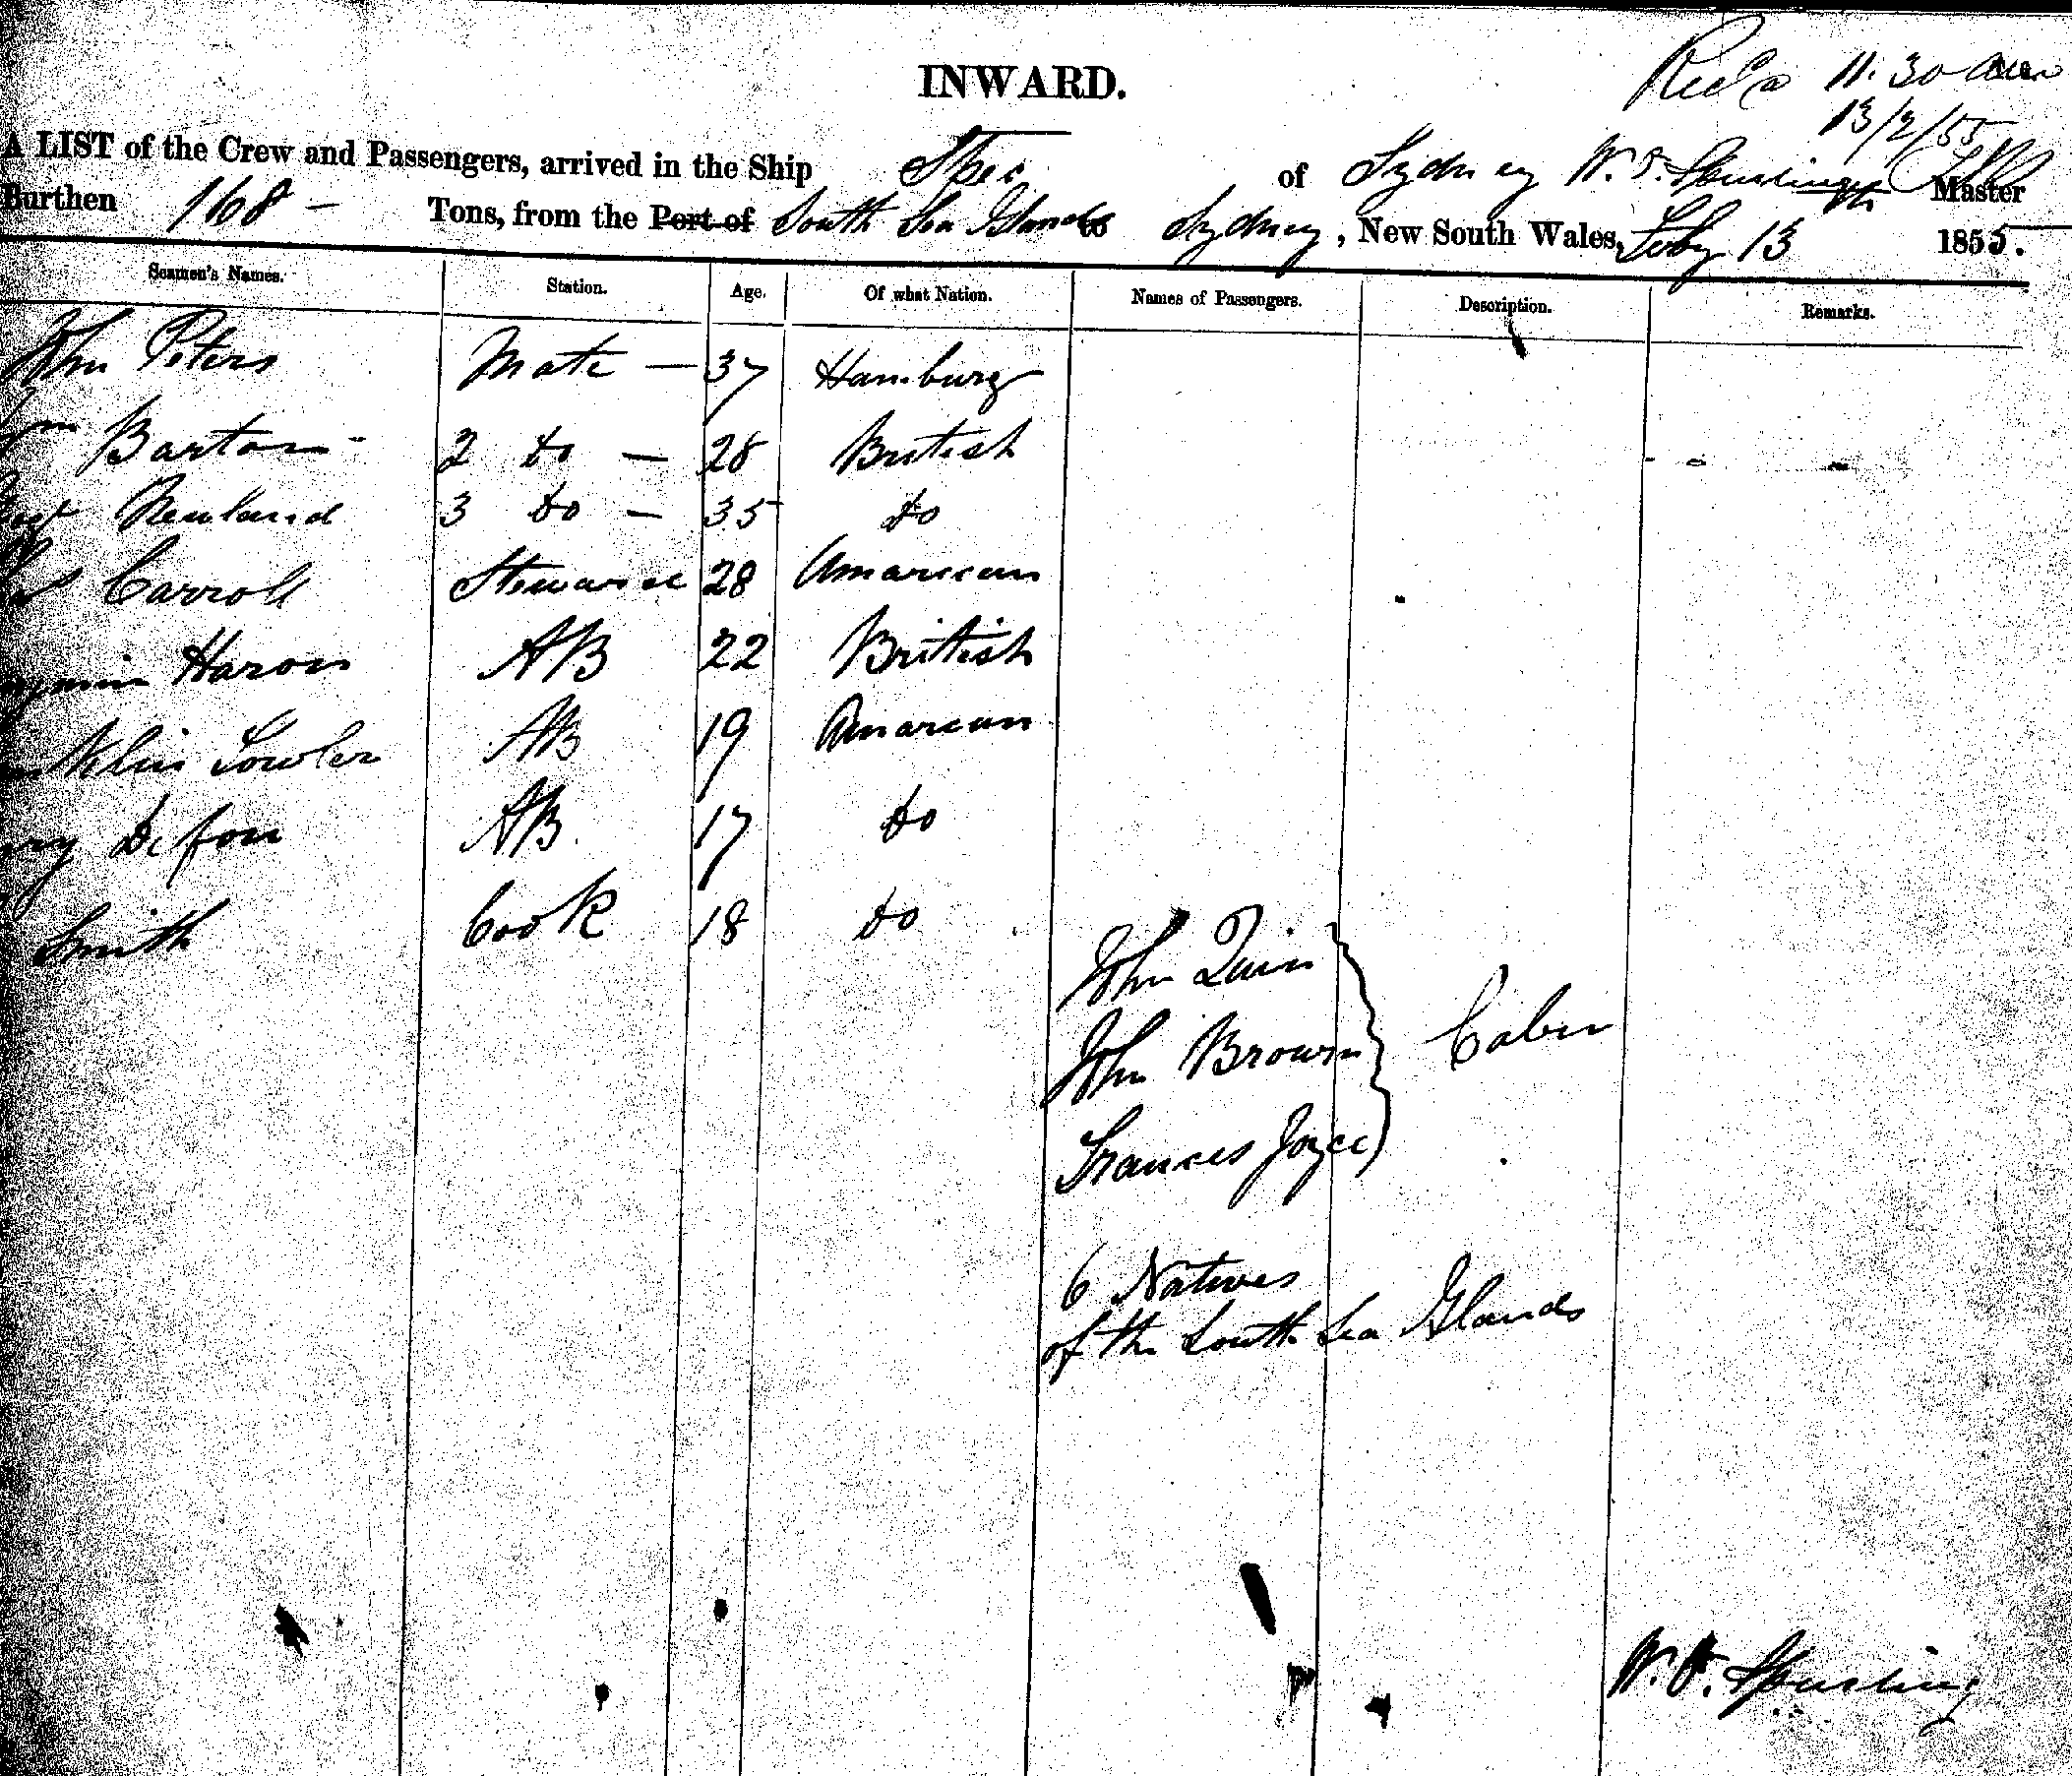 INWARD.
Recd 11.30 am
13/2/55
A LIST of the Crew and Passengers, arrived in the Ship Spec of Sydney W. F. Spurling Master
Burthen 168 - Tons, from the Port of South Sea Islands to Sydney, New South Wales, Feby 13 1855.
Seamen's Names. Station. Age. Of what Nation. Names of Passengers. Description. Remarks.
John Peters Mate — 37 Hamburg
Wm Barton 2 do — 28 British
Newland 3 do — 35 do
Carroll Steward 28 Amarican
Harou AB 22 British
Fowler AB 19 Amarcan
AB 17 do
Smith Cook 18 do
John Quin
John Brown Cabin
Frances Joyce
6 Natives
of the South Sea Islands
W. F. Spurling